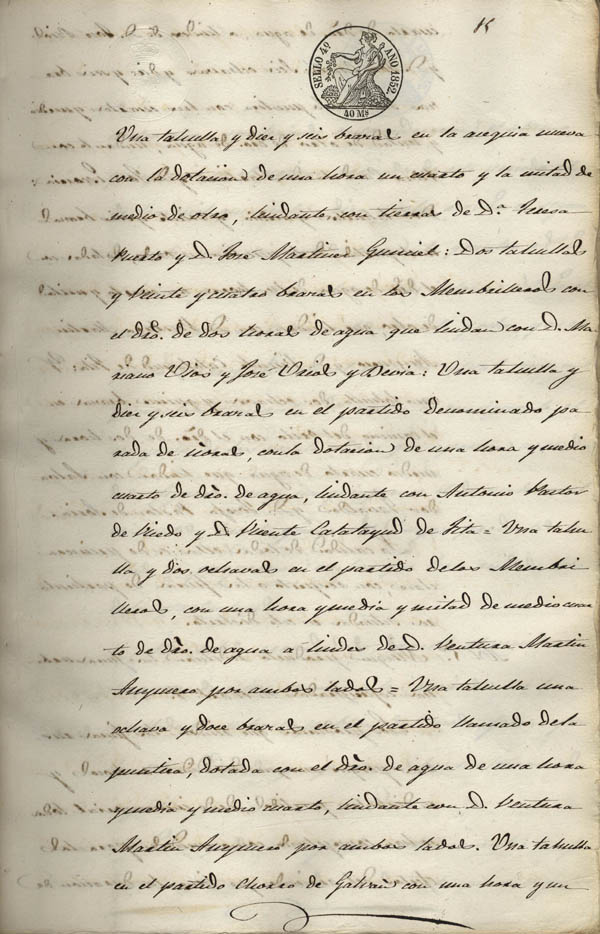 15
SELLO 4º AÑO 1852.
40 Ms
Una tahulla y diez y seis brazas en la acequia nueva
con la dotacion de una hora un cuarto y la mitad de
medio de otro, lindante con tierras de Dª. Teresa
Puerto y D. José Martinez: Dos tahullas
y veinte y cuatro brazas en los Membrilleros con
el dro. de dos horas de agua que lindan con D. Ma
riano y José y Devia: Una tahulla y
diez y seis brazas en el partido denominado pa
rada de, con la dotacion de una hora y medio
cuarto de dro. de agua, lindante con Antonio Pastor
de y D. Vicente Catalayud de = Una tahu
lla y dos ochavas en el partido de los Membri
lleros, con una hora y media y mitad de medio cuar
to de dro. de agua á linder de D. Ventura Martin
por ambos lados = Una tahulla una
ochava y doce brazas en el partido llamado de la
, dotada con el dro. de agua de una hora
y media y medio cuarto, lindante con D. Ventura
Martin por ambos lados. Una tahulla
en el partido Chorro de Galvañ con una hora y un